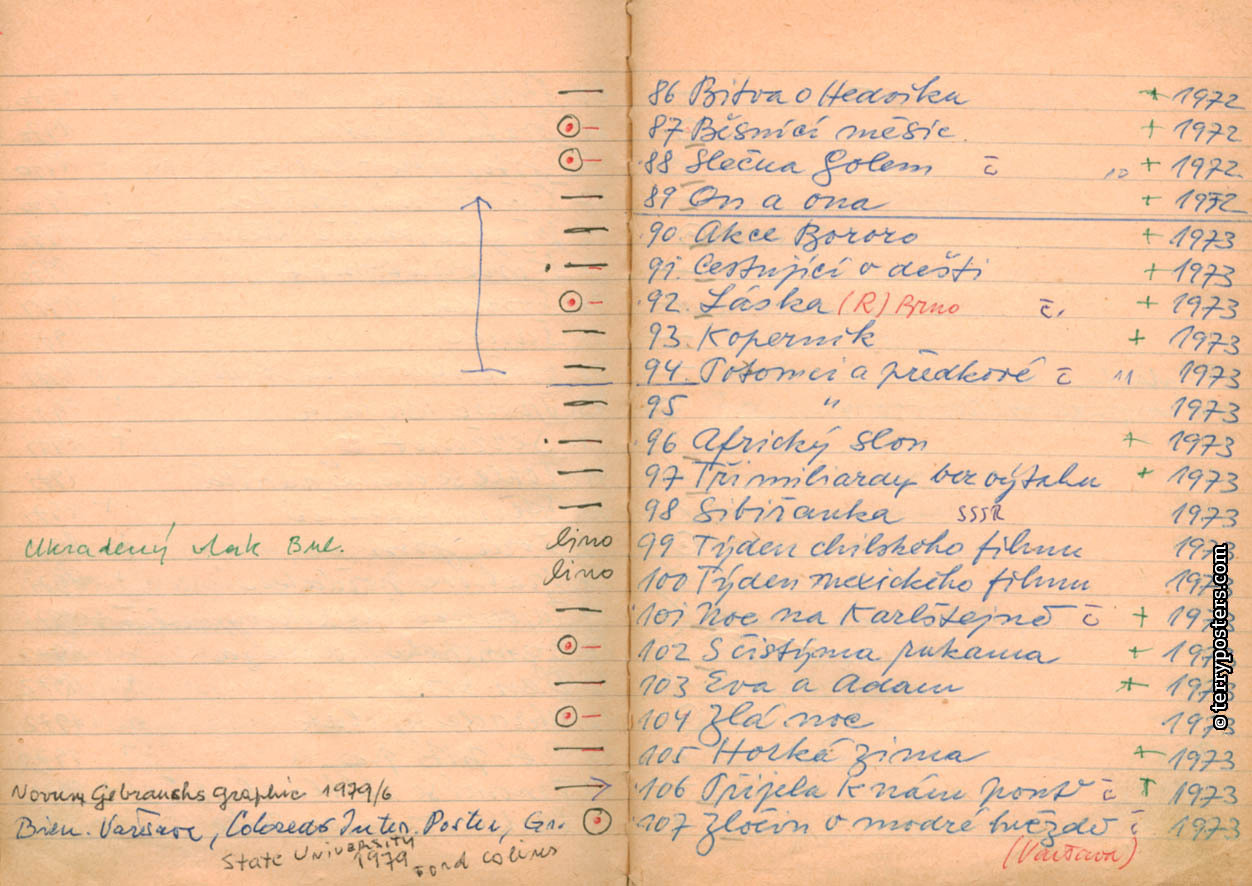 Ukradený vlak Bul.
Novum Gebrauchs graphic 1979/6
Bien. Varšava, Colorado Inter. Poster, Gr.
State University
1979 Ford Colins
86 Bitva o Hedviku + 1972
87 Běsnící měsíc + 1972
88 Slečna Golem č ,, + 1972
89 On a ona + 1972
90 Akce Bororo + 1973
91 Cestující v dešti + 1973
92 Láska (R) Brno č. + 1973
93 Koperník + 1973
94 Potomci a předkové č 11 1973
95 " 1973
96 Africký slon + 1973
97 Tři miliardy bez výtahu + 1973
98 Sibiřanka SSSR 1973
lino 99 Týden chilského filmu 1973
lino 100 Týden mexického filmu 1973
101 Noc na Karlštejně č + 1973
102 S čistýma rukama + 1973
103 Eva a Adam + 1973
104 Zlá noc 1973
105 Horká zima + 1973
106 Přijela k nám pouť č + 1973
107 Zločin v modré hvězdě č 1973
(Varšava)
© terryposters.com